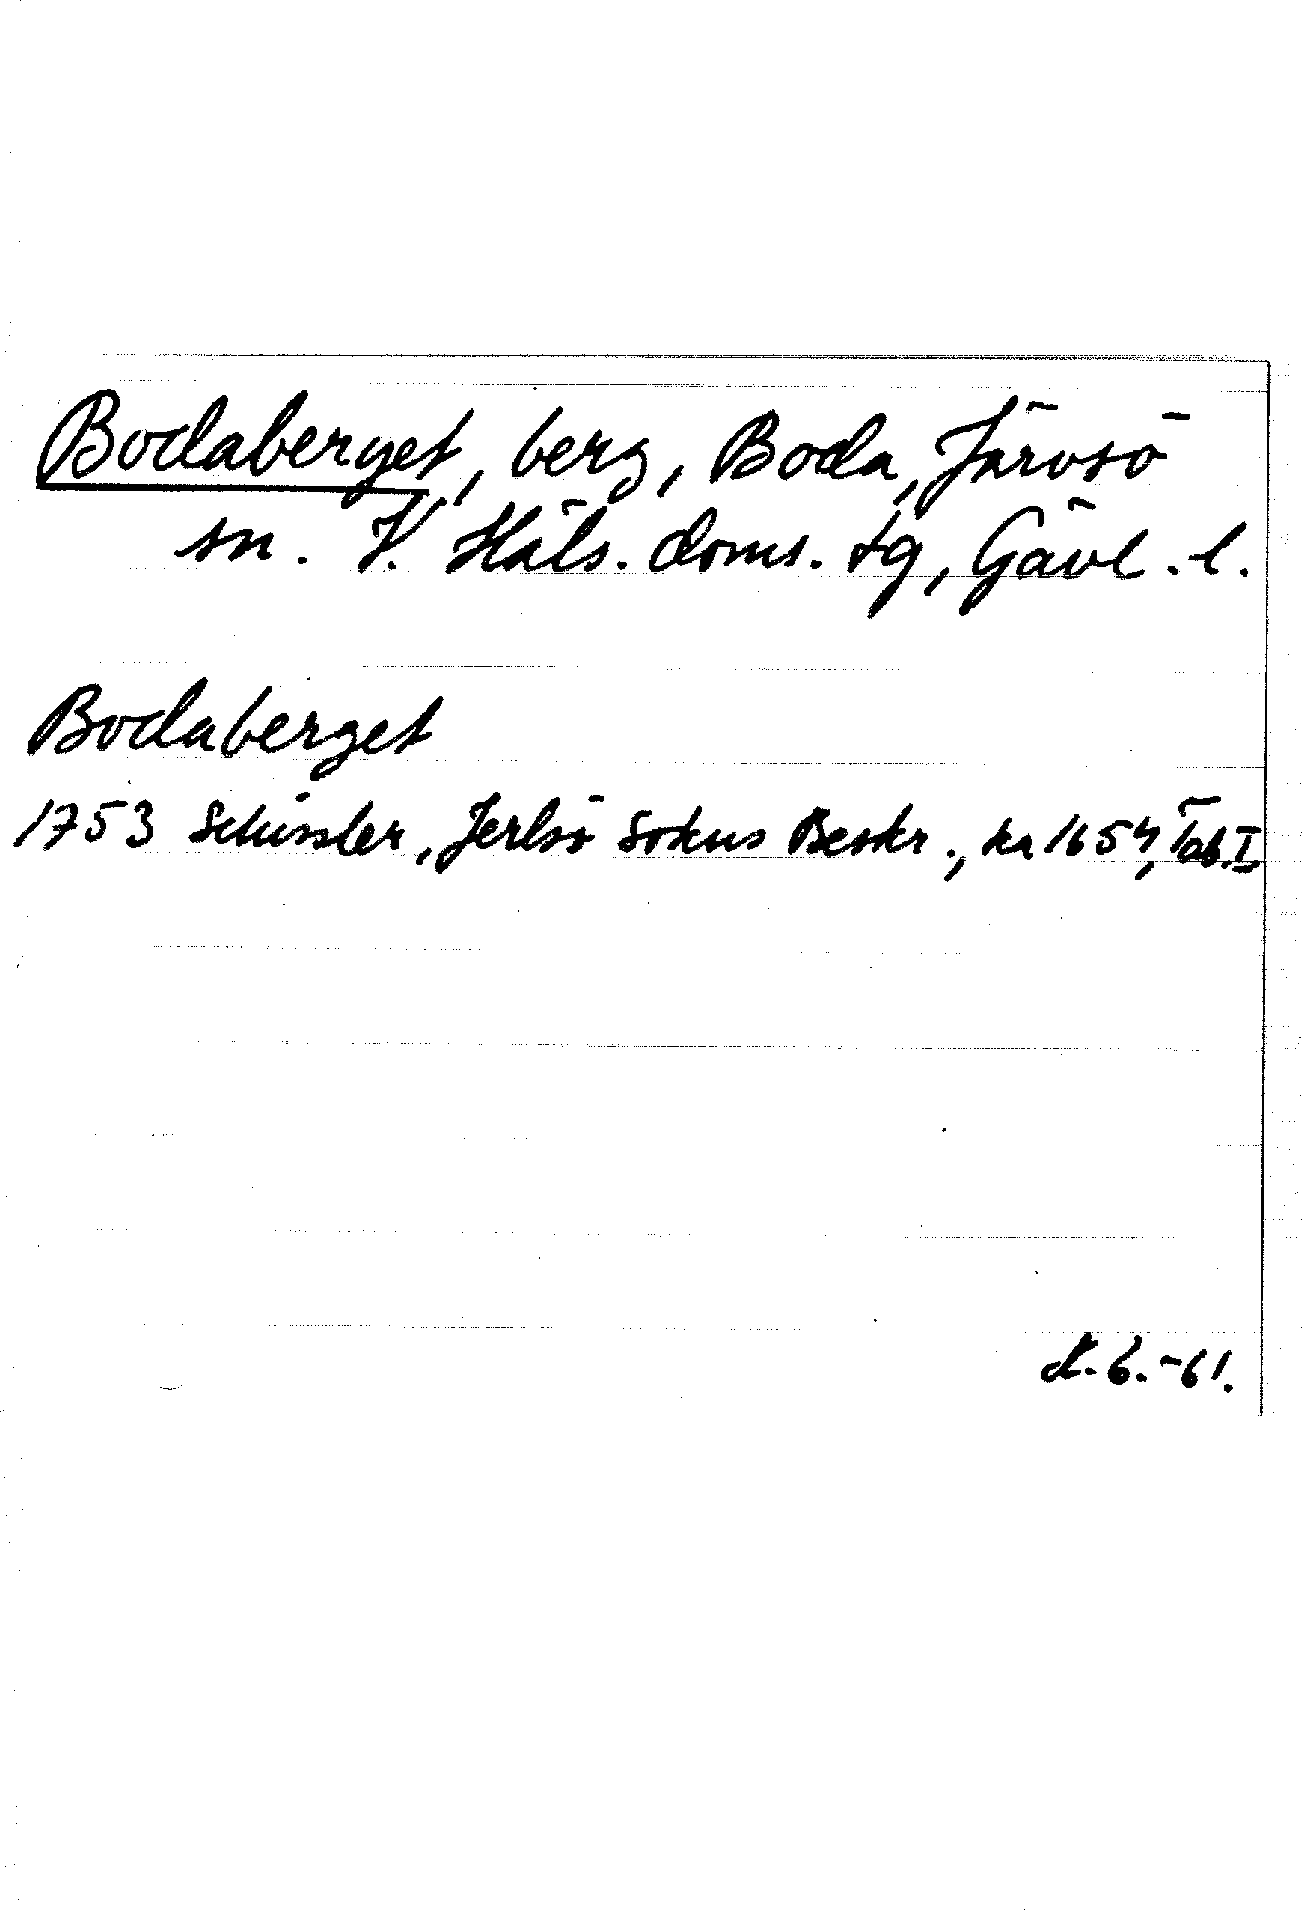 Bodaberget, berg, Boda, Järvsö
sn. V. Häls. doms. tg, Gävl. l.
Bodaberget
1753 Schissler, Jerlsö Sokns Beskr., ka 1654, Tab. I
-61.